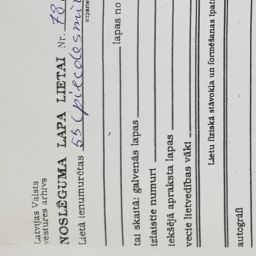 Latvijas Valsts
vēstures arhīvs
NOSLĒGUMA LAPA LIETAI Nr. 78
Lietā ienumurētas 55 (piecdesmit
lapas no
tai skaitā: galvenās lapas
izlaistie numuri
iekšējā apraksta lapas
vecie lietvedības vāki
Lietu fiziskā stāvokļa un formēšanas īpat
autogrāfi